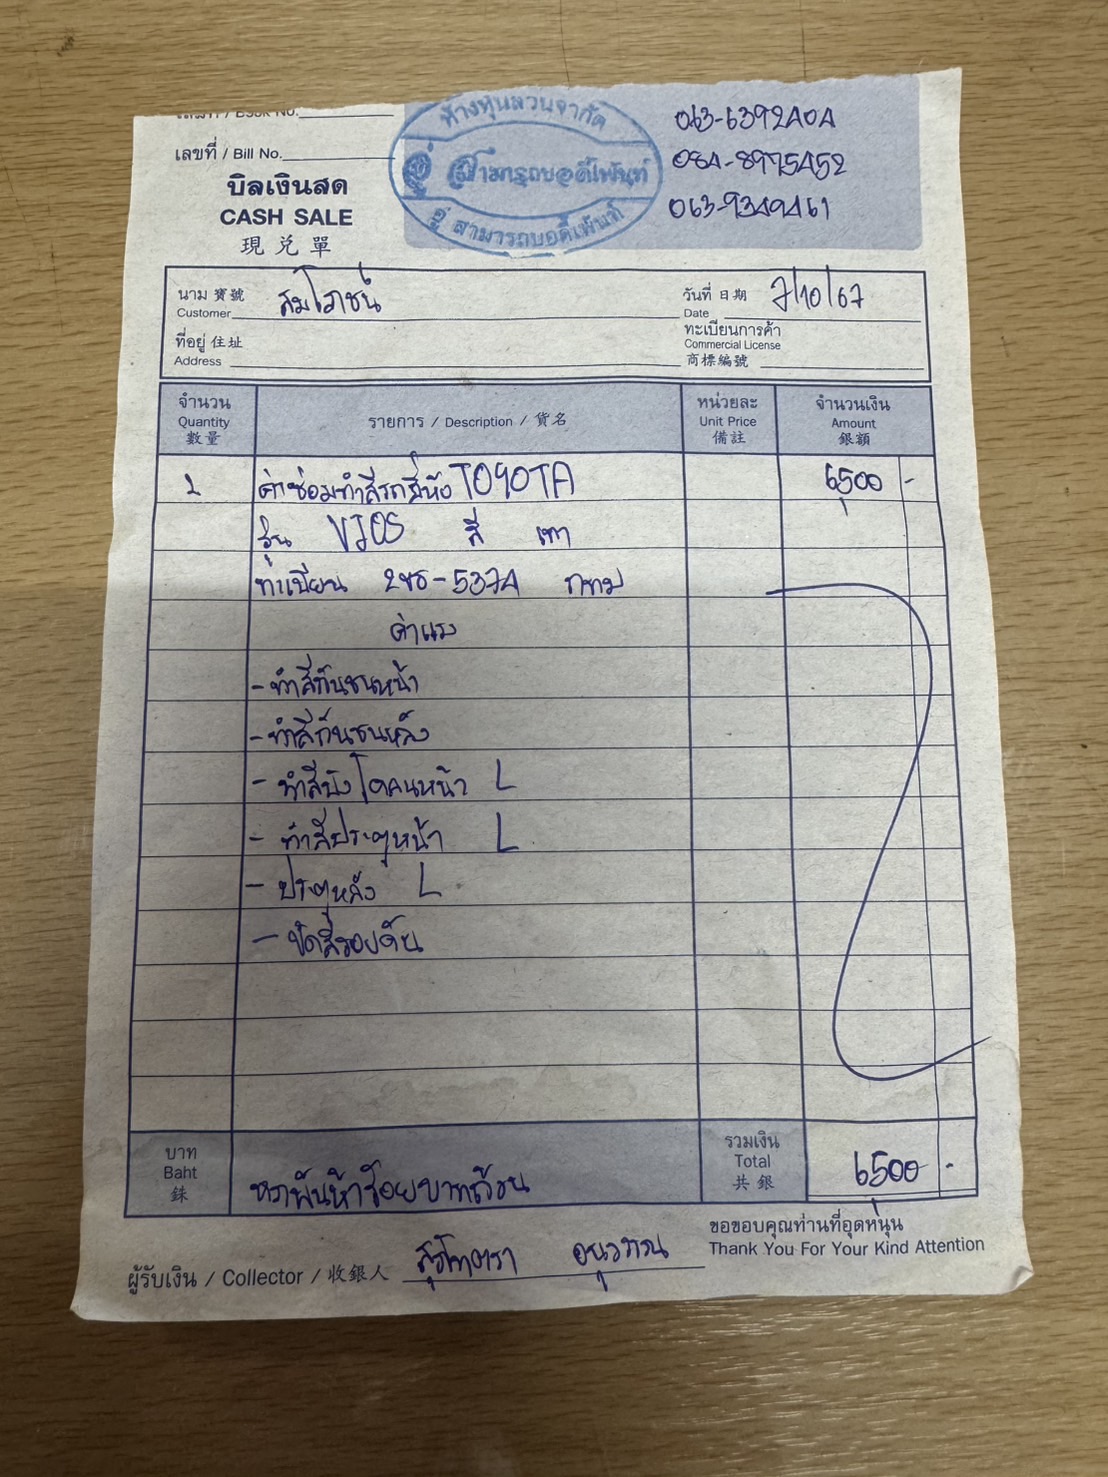 เลขที่ / Bill No.
บิลเงินสด
CASH SALE
現兌單
ห้างหุ้นส่วนจำกัด
อู่ สามารถบอดี้เพ้นท์
อู่ สามารถบอดี้เพ้นท์
063-6392404
084-8975452
063-9349461
นาม 寶號 สมโภชน์
Customer
วันที่ 日期 7/10/67
Date
ที่อยู่ 住址
Address
ทะเบียนการค้า
Commercial License
商標編號
จำนวน
Quantity
數量
รายการ / Description / 貨名
หน่วยละ
Unit Price
備註
จำนวนเงิน
Amount
銀額
1 ค่าซ่อมทำสีรถยี่ห้อ TOYOTA 6500 -
รุ่น VIOS สี เทา
5374 กทม
ค่าแรง
- ทำสีกันชนหน้า
- ทำสีกันชนหลัง
- ทำสีบังโคลนหน้า L
- ทำสีประตูหน้า L
- ประตูหลัง L
- ขัดสีรอบคัน
บาท
Baht
銖
หกพันห้าร้อยบาทถ้วน
รวมเงิน
Total
共銀
6500 -
ขอขอบคุณท่านที่อุดหนุน
Thank You For Your Kind Attention
ผู้รับเงิน / Collector / 收銀人